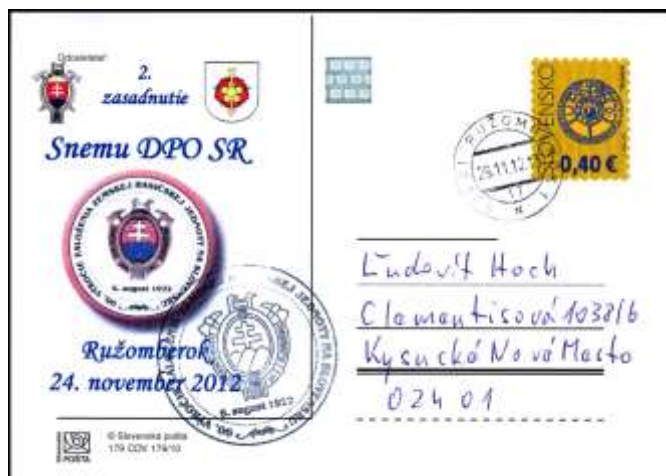 Odosielateľ:
2.
zasadnutie
Snemu DPO SR
90. VÝROČIE ZALOŽENIA ZEMSKEJ HASIČSKEJ JEDNOTY NA SLOVENSKU
6. august 1922
Ružomberok
24. november 2012
6. august 1922
© Slovenská pošta
179 CDV 179/10
POŠTA
SLOVENSKO
0,40 €
26.11.12
Ľudovít Hoch
Clementisová 1038/6
Kysucké Nové Mesto
024 01